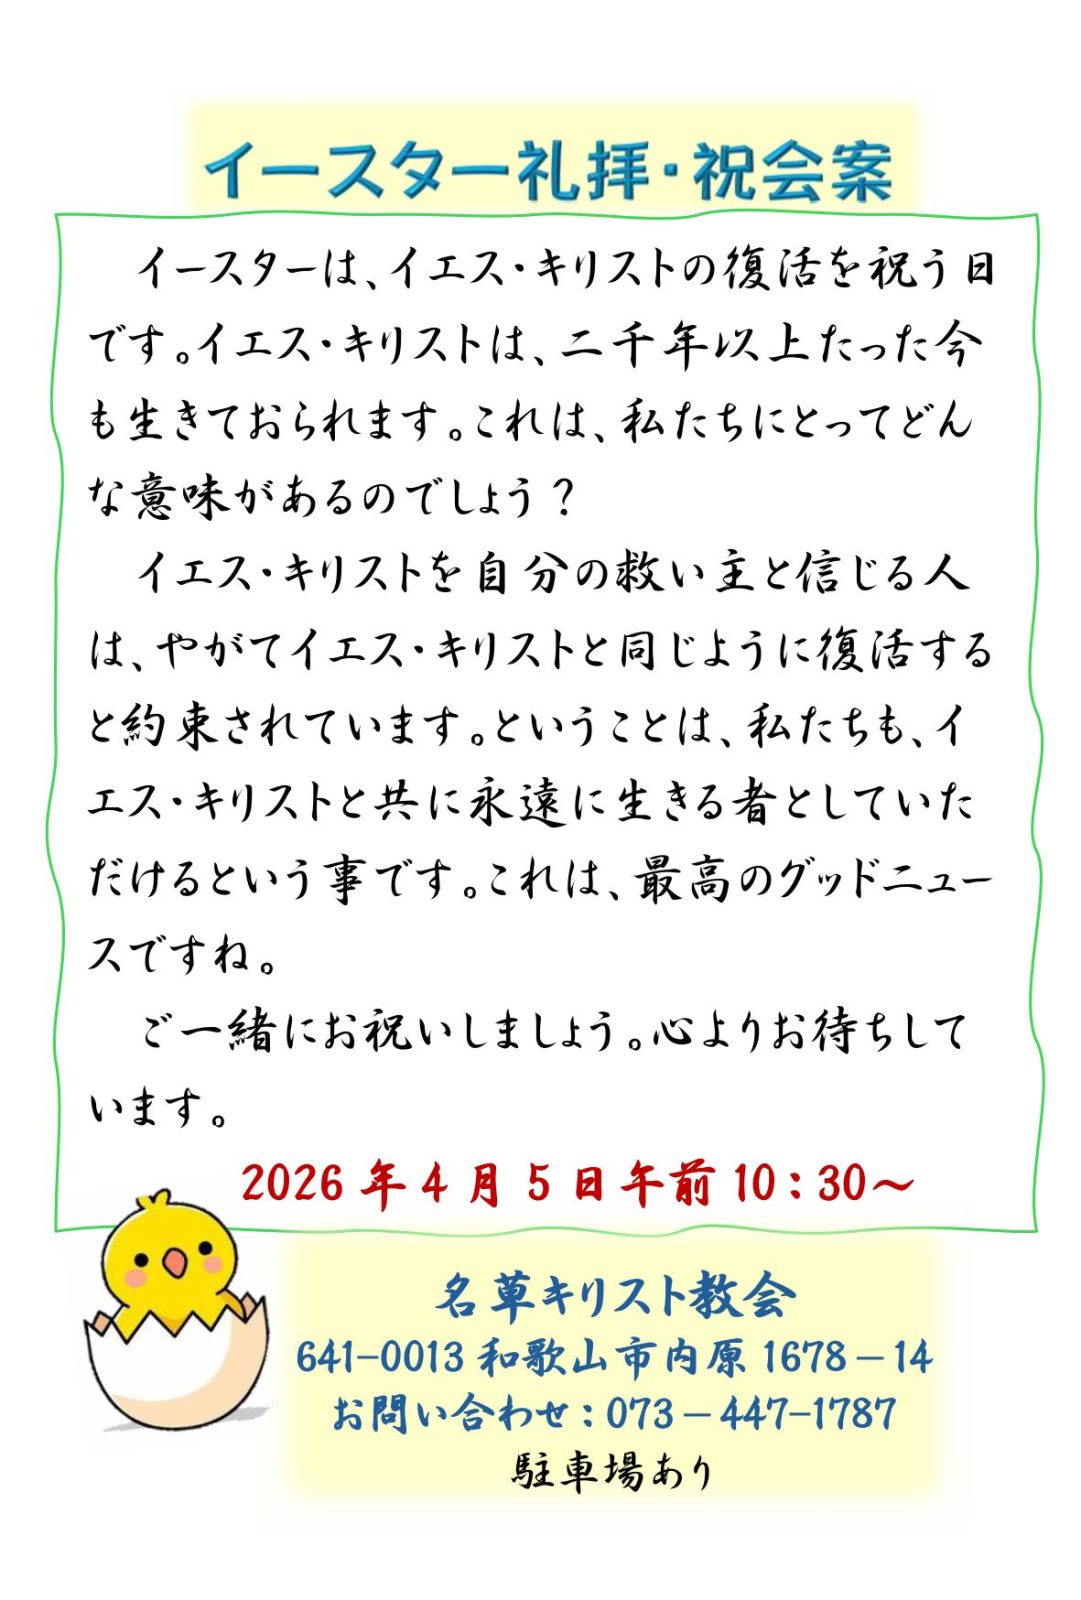 イースター礼拝・祝会案
イースターは、イエス・キリストの復活を祝う日
です。イエス・キリストは、二千年以上たった今
も生きておられます。これは、私たちにとってどん
な意味があるのでしょう？
イエス・キリストを自分の救い主と信じる人
は、やがてイエス・キリストと同じように復活する
と約束されています。ということは、私たちも、イ
エス・キリストと共に永遠に生きる者としていた
だけるという事です。これは、最高のグッドニュー
スですね。
ご一緒にお祝いしましょう。心よりお待ちして
います。
2026年4月5日午前10：30～
名草キリスト教会
641-0013和歌山市内原1678－14
お問い合わせ：073－447-1787
駐車場あり